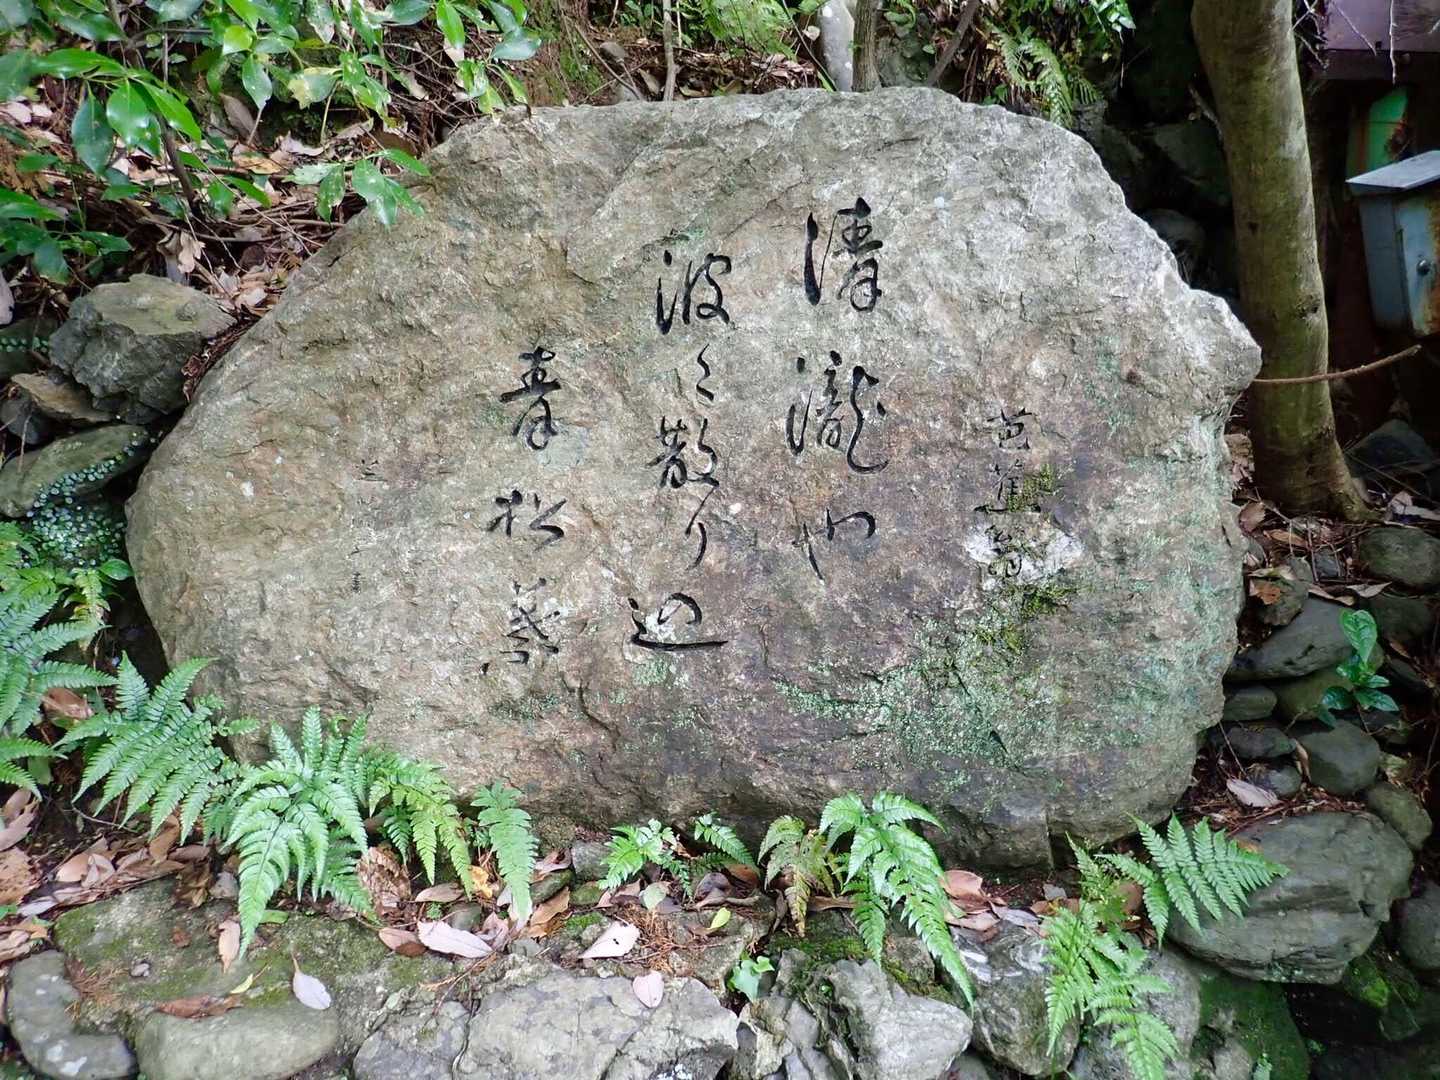 芭蕉翁
清瀧や
波に散り込
青松葉